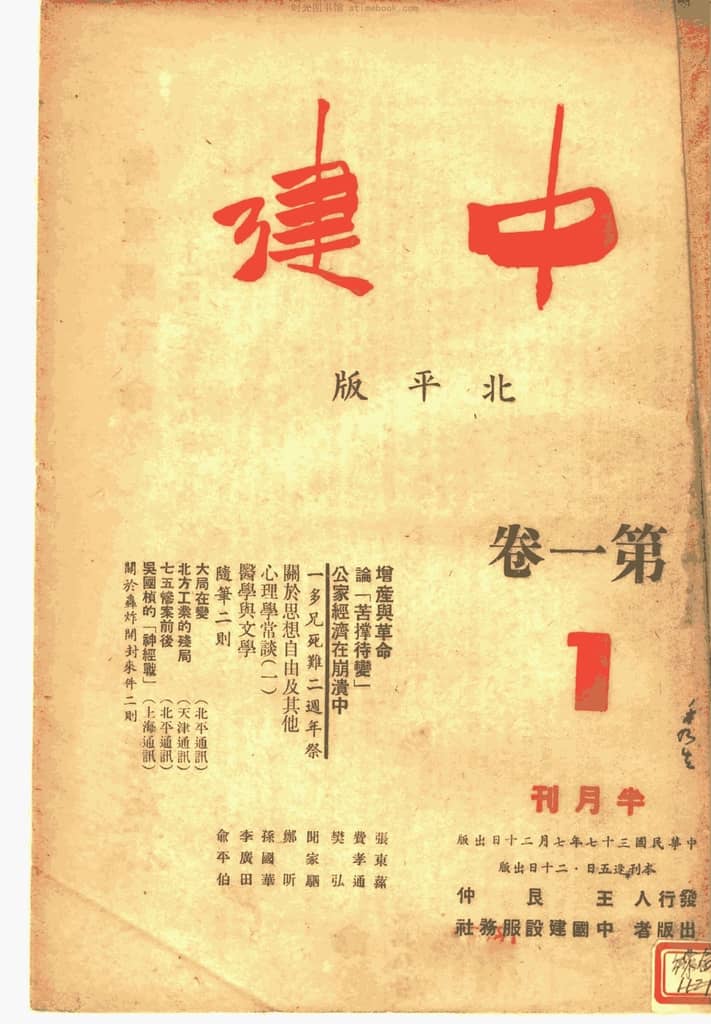 时光图书馆 atimebook.com
中建
北平版
第一卷
1
半月刊
中華民國三十七年七月二十日出版
本刊逢五日·二十日出版
發行人 王艮仲
出版者 中國建設服務社
增產與革命 張東蓀
論「苦撐待變」 費孝通
公家經濟在崩潰中 樊弘
一多兄死難二週年祭 聞家駟
關於思想自由及其他 鄭昕
心理學常談(一) 孫國華
醫學與文學 李廣田
隨筆二則 俞平伯
大局在變 (北平通訊)
北方工業的殘局 (天津通訊)
七五慘案前後 (北平通訊)
吳國楨的「神經戰」 (上海通訊)
關於轟炸開封來件二則